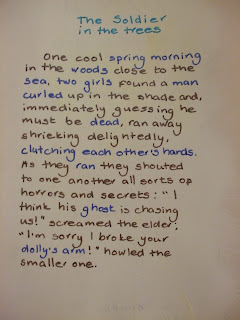 The Soldier
in the trees
One cool spring morning
in the woods close to the
sea, two girls found a man
curled up in the shade and,
immediately guessing he
must be dead, ran away
shrieking delightedly,
clutching each other's hands.
As they ran they shouted
to one another all sorts of
horrors and secrets: "I
think his ghost is chasing
us!" screamed the elder;
"I'm sorry I broke your
dolly's arm!" howled the
smaller one.